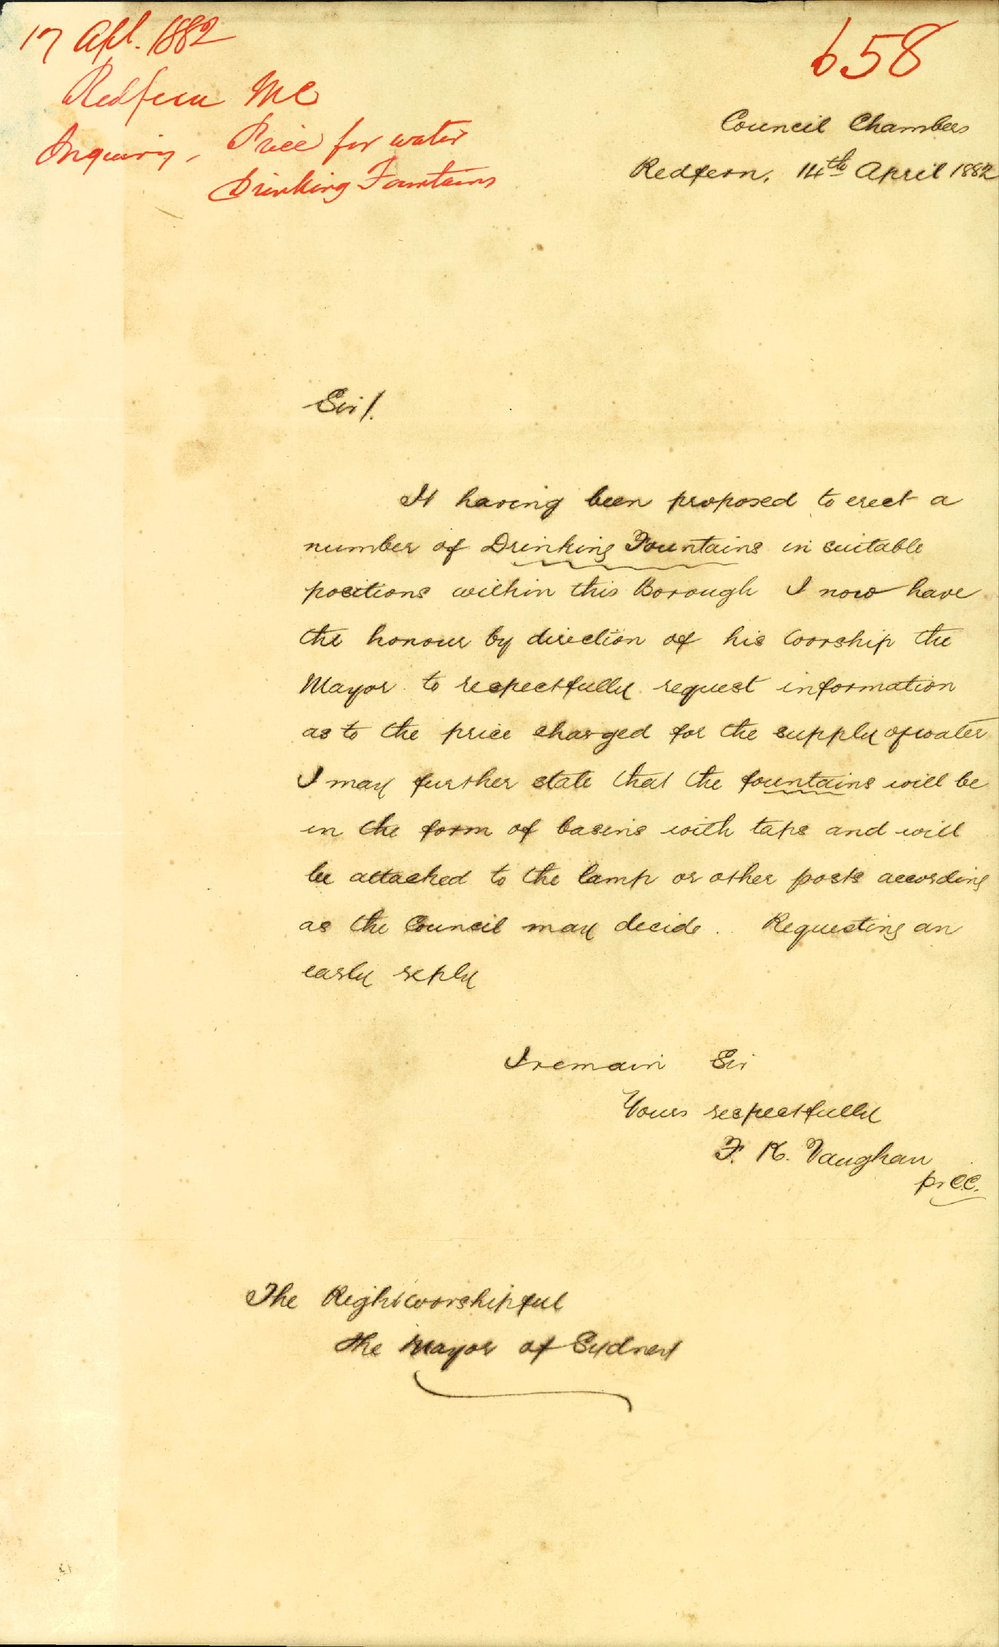 17 Apl. 1882
Redfern M C
Inquiry, Price for water
Drinking Fountains
658
Council Chambers
Redfern, 14th April 1882
Sir/.
It having been proposed to erect a
number of Drinking Fountains in suitable
positions within this Borough I now have
the honour by direction of his Worship the
Mayor to respectfully request information
as to the price charged for the supply of water
I may further state that the fountains will be
in the form of basins with taps and will
be attached to the lamp or other posts according
as the Council may decide. Requesting an
early reply
I remain Sir
Yours respectfully
F. K. Vaughan
pr C.C.
The Right Worshipful
the Mayor of Sydney